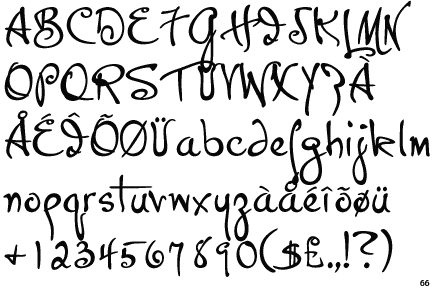 ABCDEFGHIJKLMN
OPQRSTUVWXYZÀ
ÅÉÎÕØÜabcdefghijklm
nopqrstuvwxyzàåéîõøü
+1234567890($£.,!?)
66